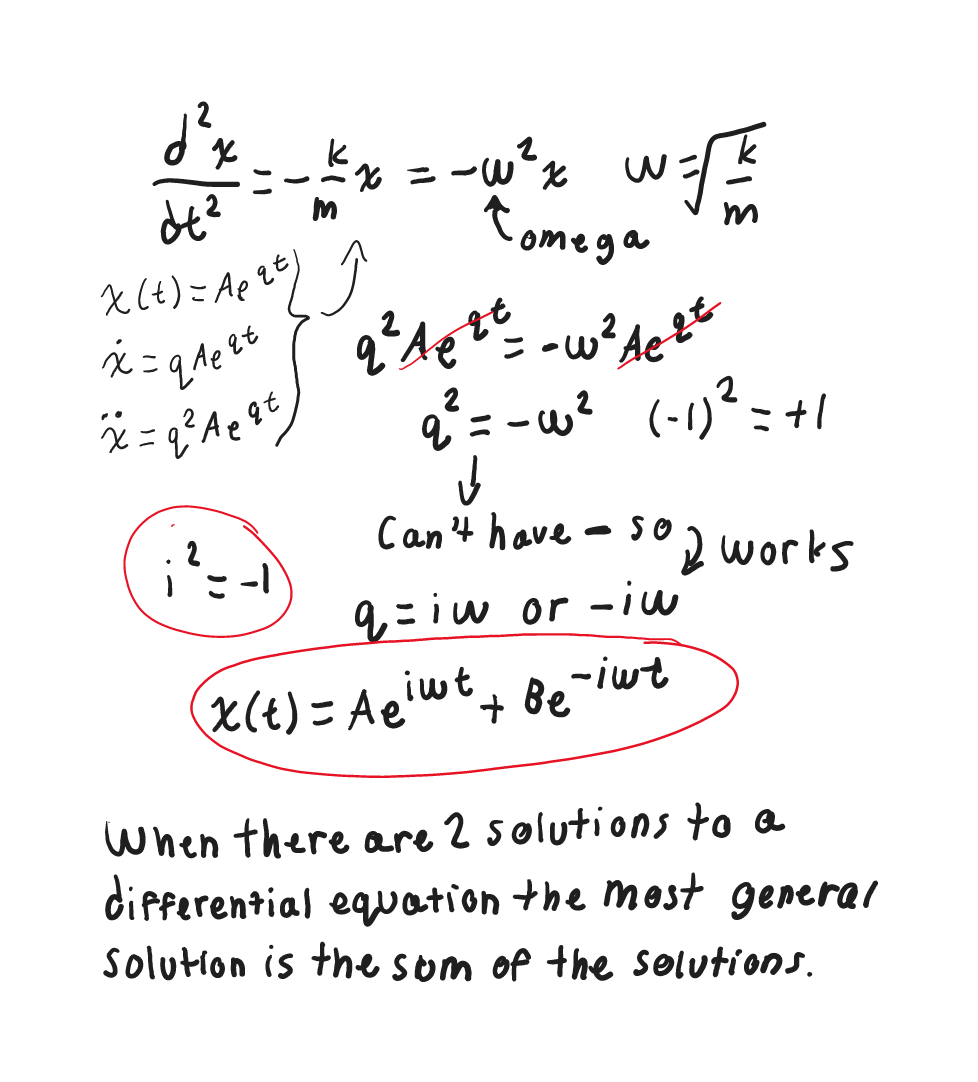 d²x/dt² = -k/m x = -ω²x ω = √(k/m)
omega
x(t) = Ae^qt
ẋ = qAe^qt
ẍ = q²Ae^qt
q²Ae^qt = -ω²Ae^qt
q² = -ω² (-1)² = +1
Can't have - so works
i² = -1
q = iω or -iω
x(t) = Ae^iωt + Be^-iωt
When there are 2 solutions to a
differential equation the most general
solution is the sum of the solutions.